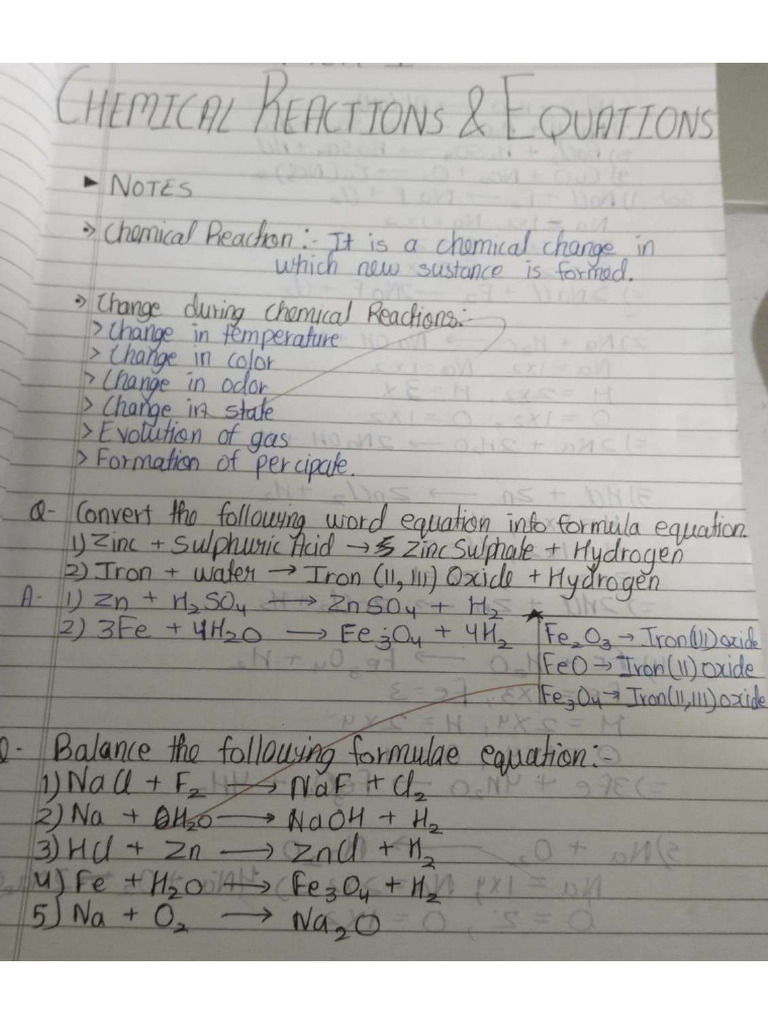 CHEMICAL REACTIONS & EQUATIONS
► NOTES
→ Chemical Reaction:- It is a chemical change in
which new sustance is formed.
→ Change during Chemical Reactions:-
> Change in temperature
> Change in color
> Change in odor
> Change in state
> Evolution of gas
> Formation of percipate.
Q- Convert the following word equation into formula equation.
1) Zinc + Sulphuric Acid → Zinc Sulphate + Hydrogen
2) Iron + water → Iron (II, III) Oxide + Hydrogen
A- 1) Zn + H₂SO₄ → ZnSO₄ + H₂
2) 3Fe + 4H₂O → Fe₃O₄ + 4H₂
Fe₂O₃ → Iron(II) oxide
FeO → Iron(II) oxide
Fe₃O₄ → Iron(II,III) oxide
Q- Balance the following formulae equation:-
1) NaCl + F₂ → NaF + Cl₂
2) Na + H₂O → NaOH + H₂
3) HCl + Zn → ZnCl + H₂
4) Fe + H₂O → Fe₃O₄ + H₂
5) Na + O₂ → Na₂O